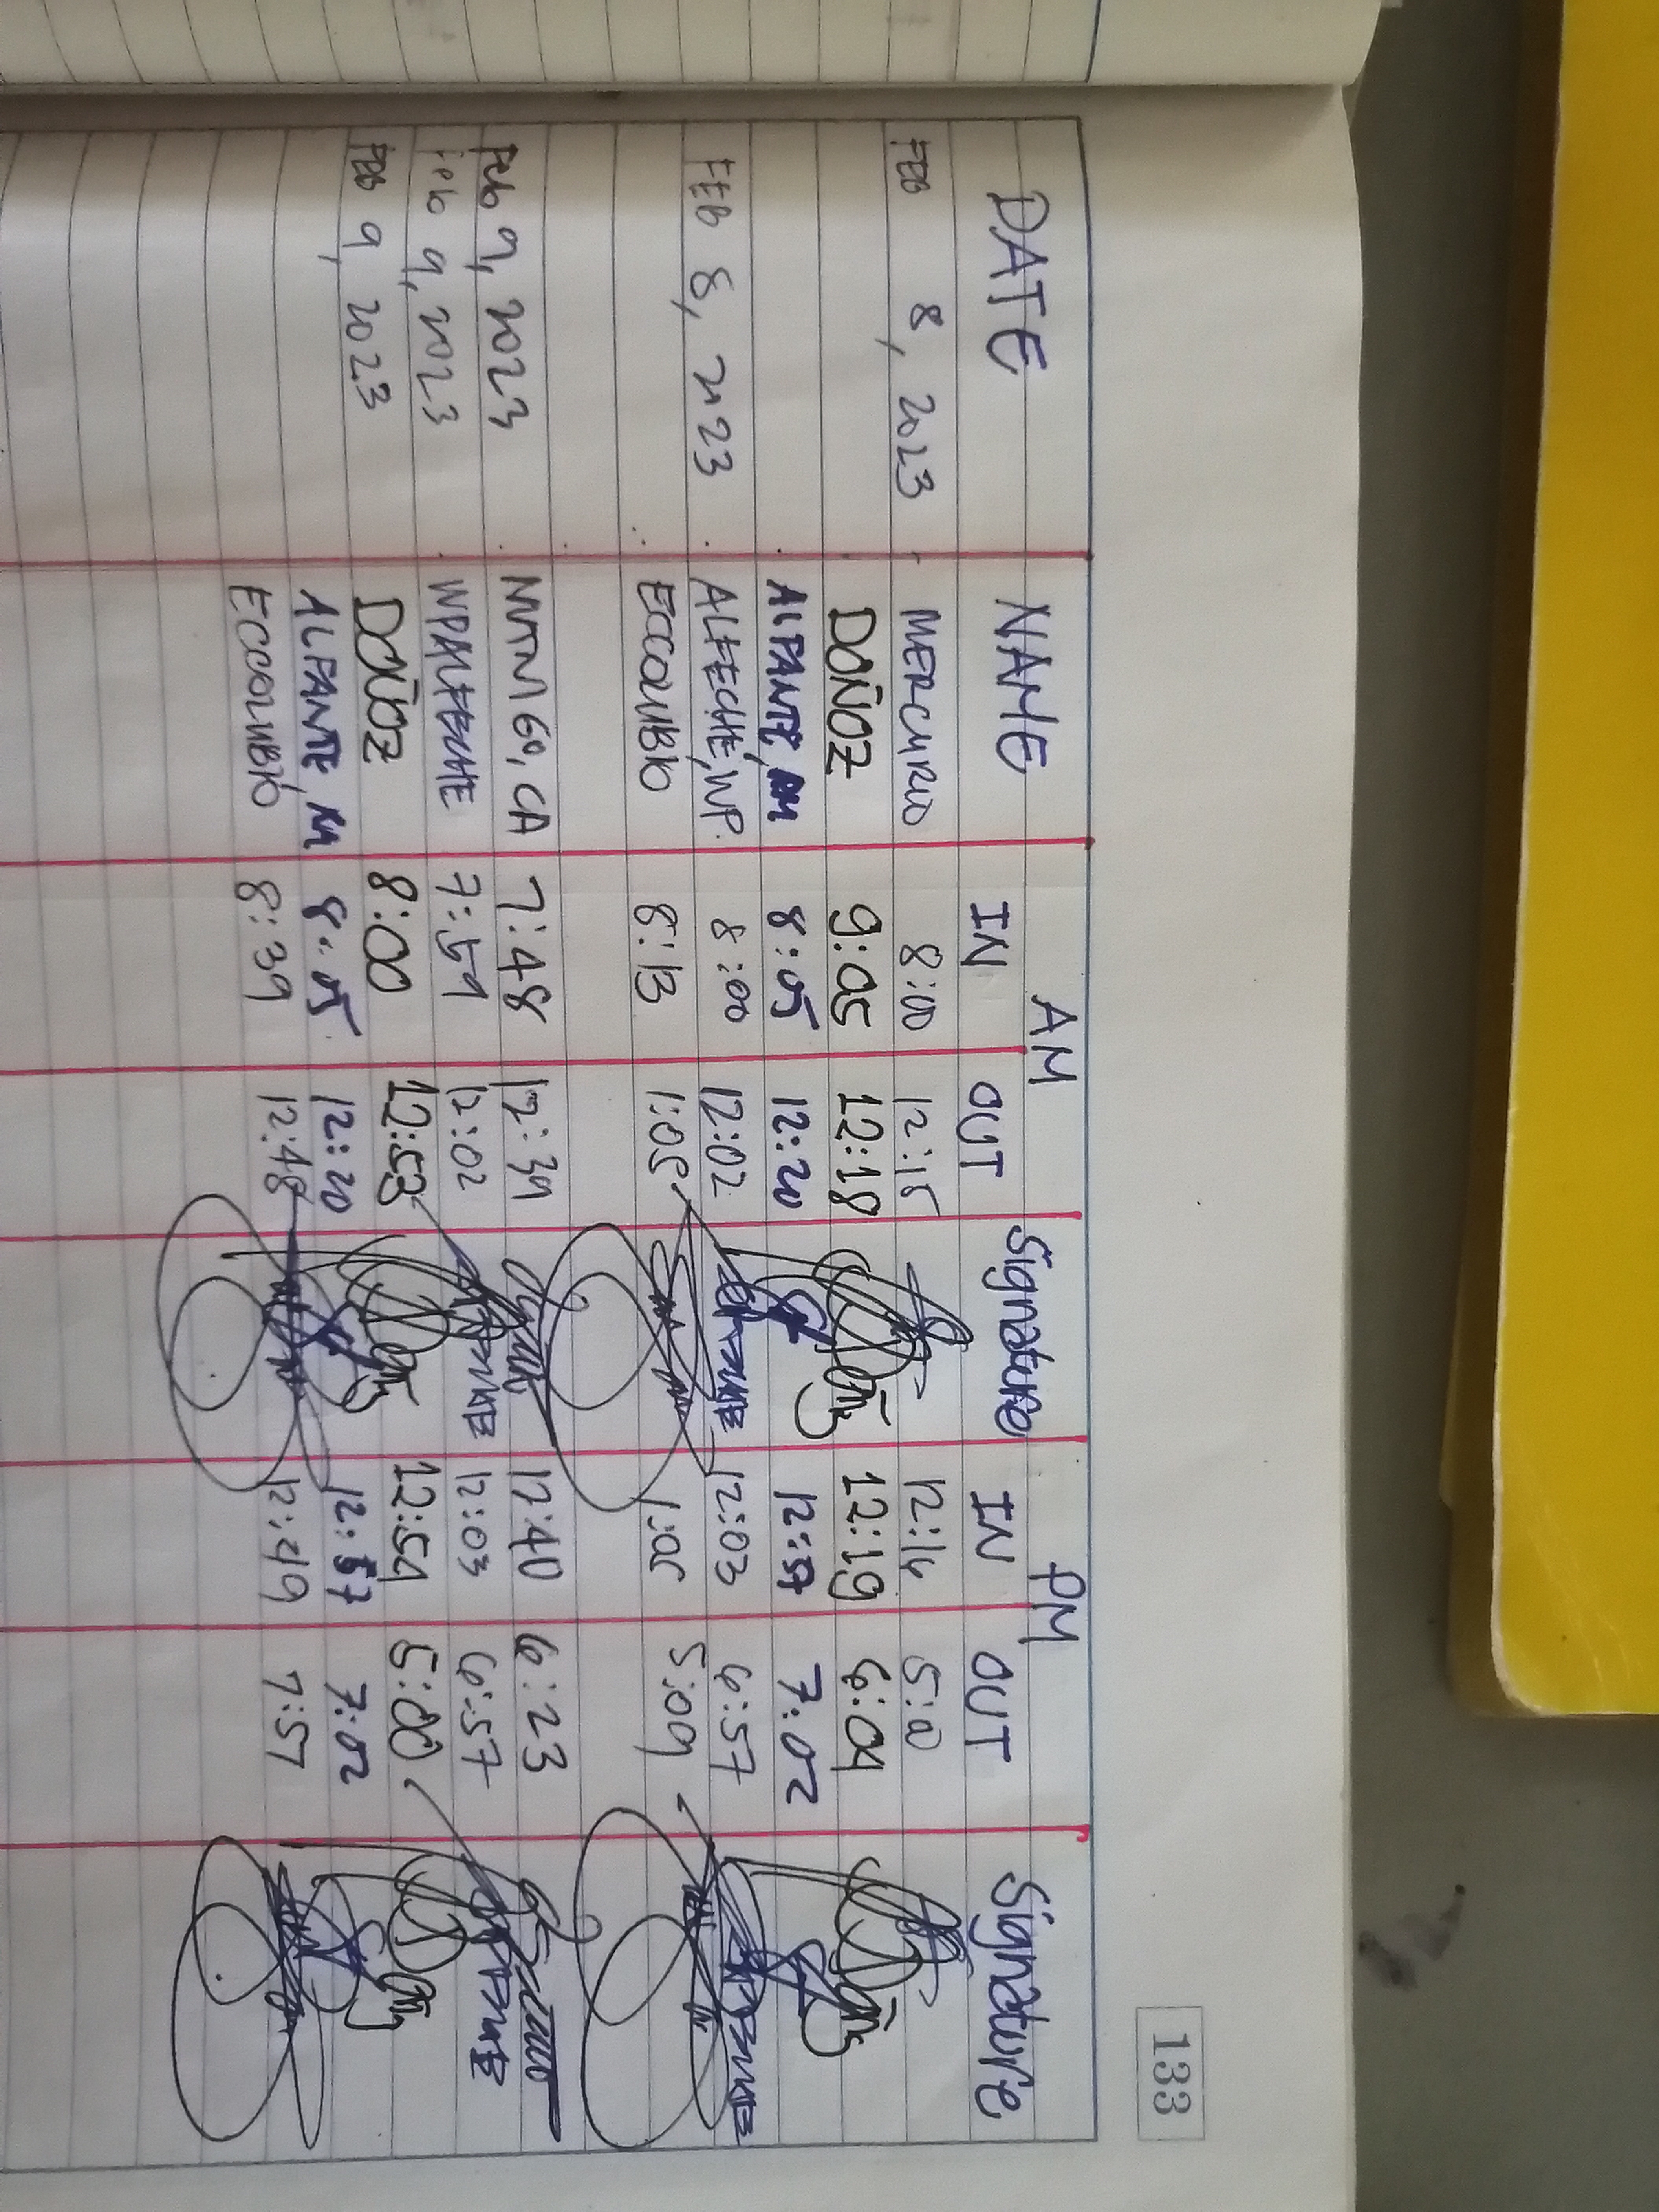 133
AM PM
DATE NAME IN OUT Signature IN OUT Signature
FEB 8, 2023 MERCURIO 8:00 12:15 12:14 5:00
DOÑOZ 9:05 12:18 12:19 6:04
ALFANTE, AM 8:05 12:20 12:57 7:02
FEB 8, 2023 ALFECHE, WP. 8:00 12:02 12:03 6:57
ECCOLUBIO 8:13 1:05 1:05 5:09
Feb 9, 2023 CA 7:48 12:39 12:40 6:23
Feb 9, 2023 WPALFECHE 7:59 12:02 12:03 6:57
FEB 9, 2023 DOÑOZ 8:00 12:53 12:54 5:00
ALFANTE, M 8:05 12:20 12:57 7:02
ECCOLUBIO 8:39 12:48 12:49 7:57